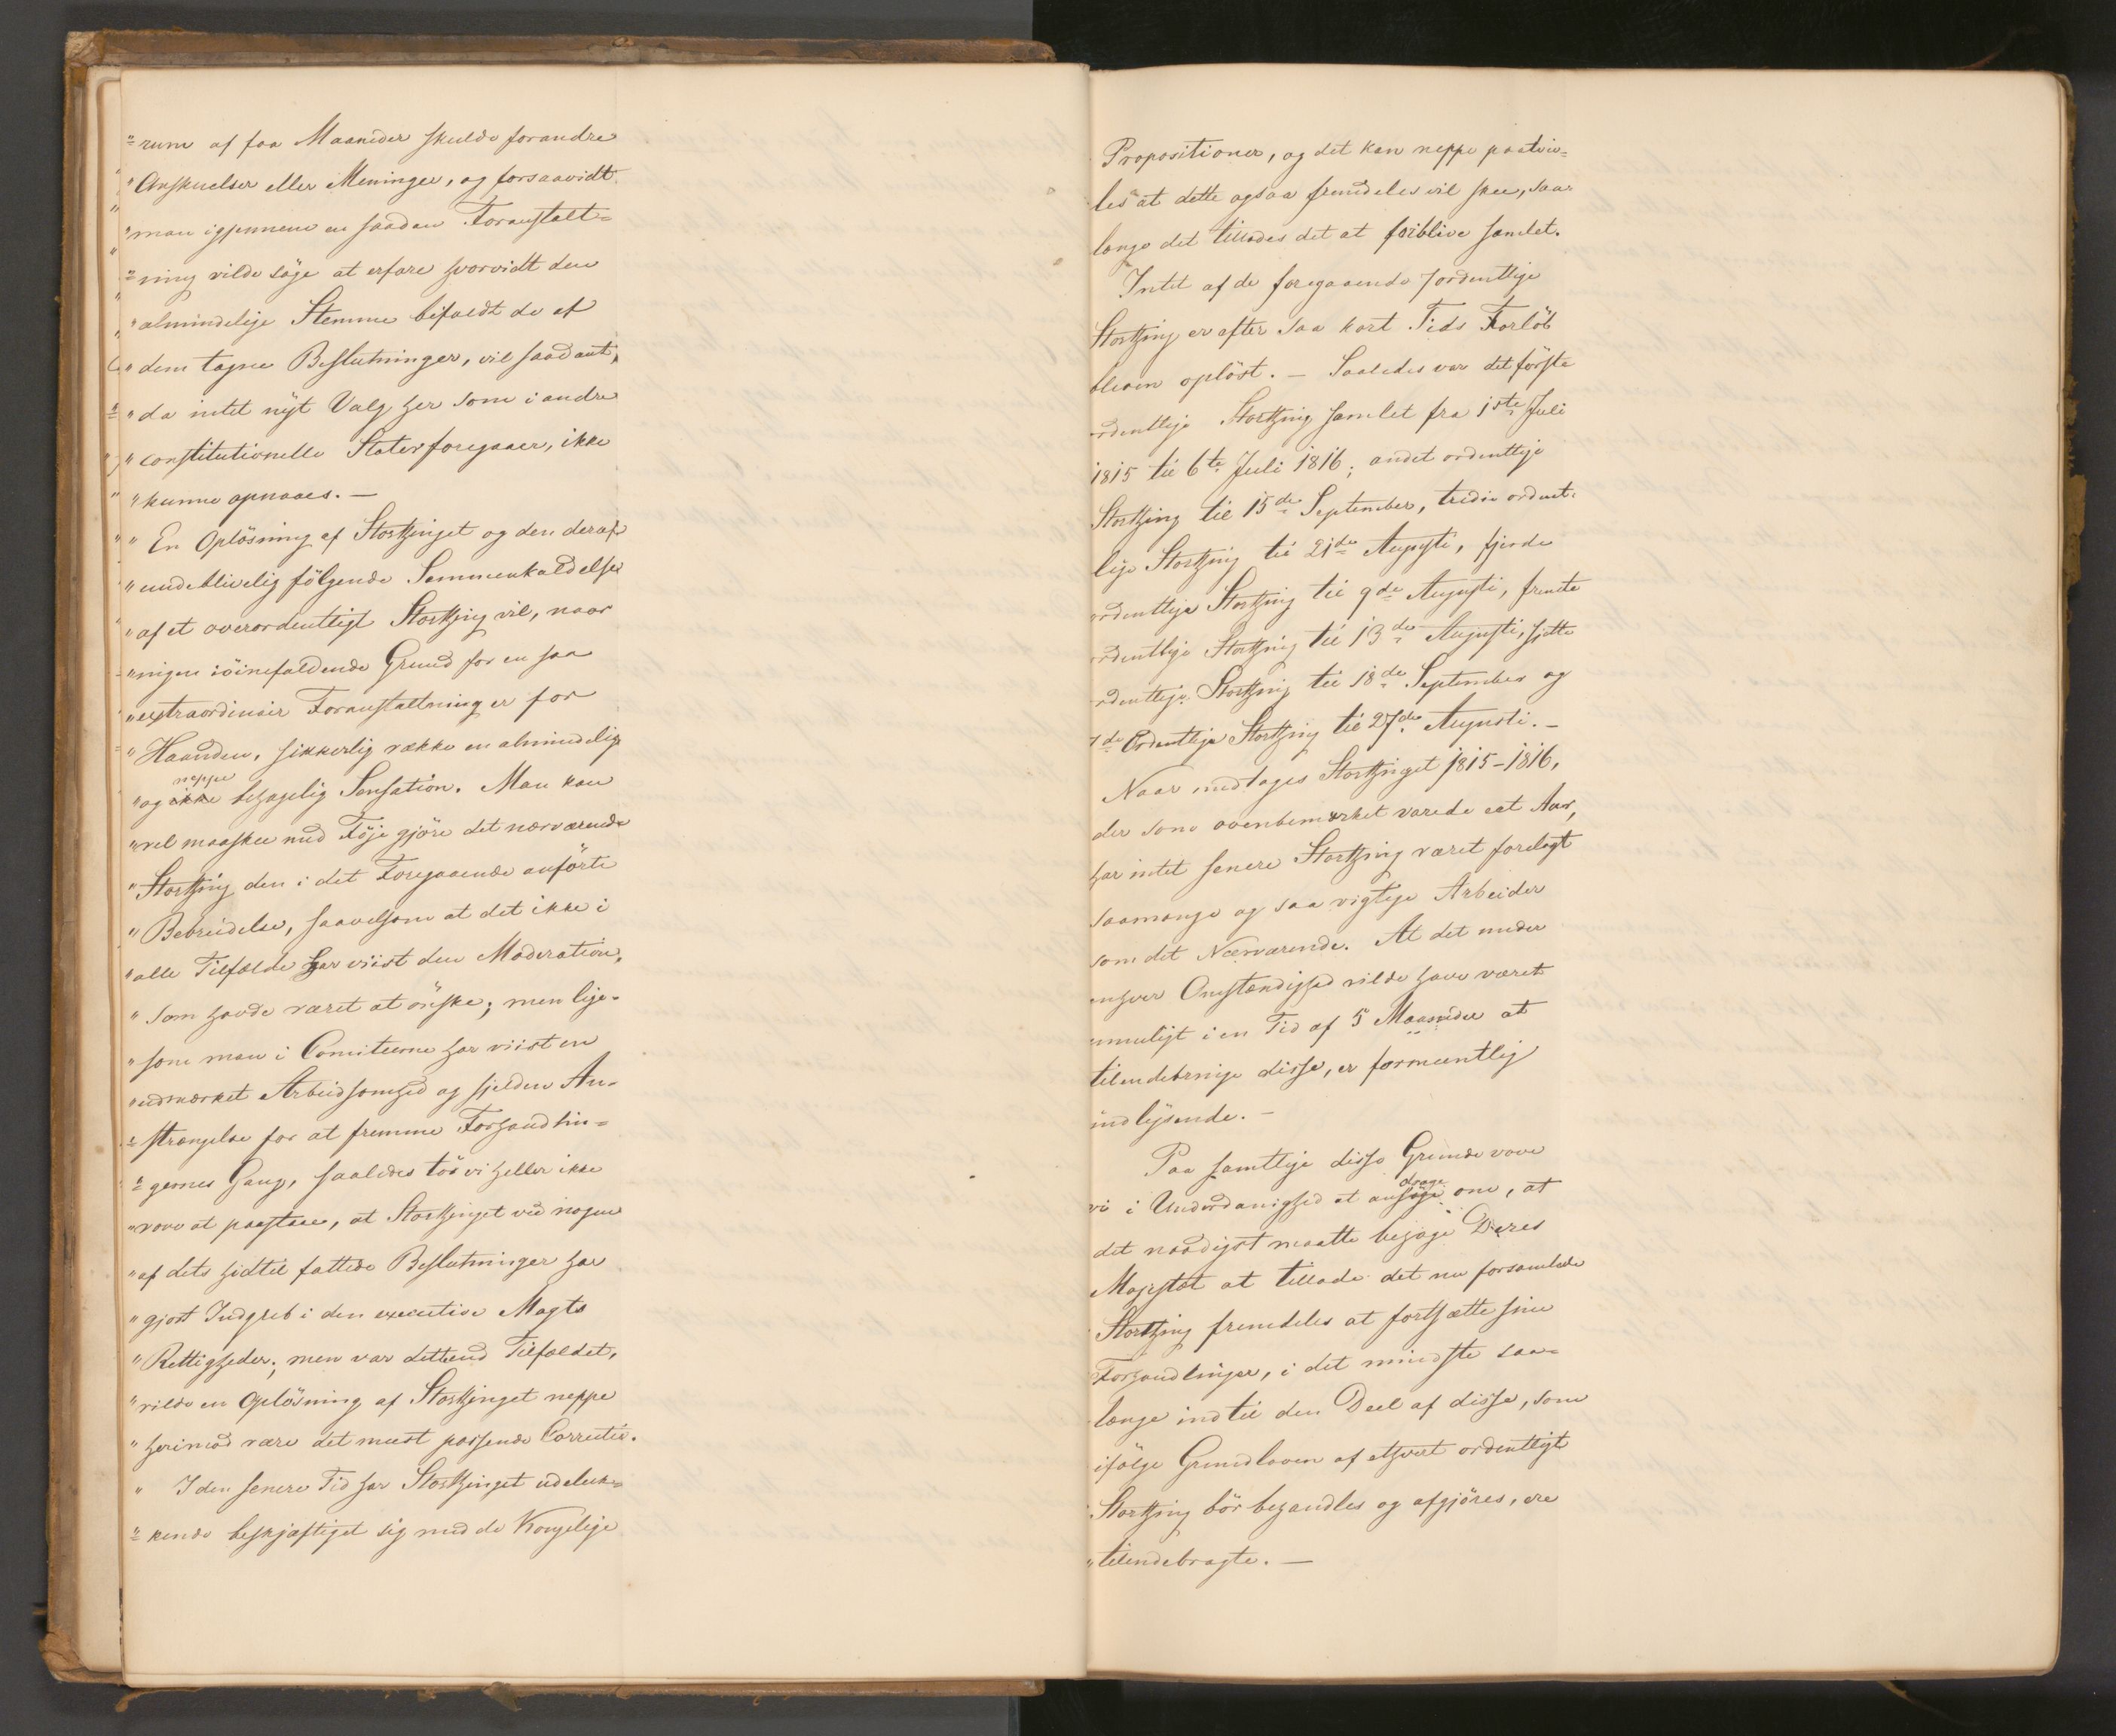 "rum af faa Maaneder skulde forandre
"Anskuelser eller Meninger, og forsaavidt
"man igjennem en saadan Foranstalt=
"ning vilde søge at erfare hvorvidt den
"almindelige Stemme bifaldt de af
"dem tagne Beslutninger, vil saadant,
"da intet nyt Valg her som i andre
"constitutionelle Stater foregaaer, ikke
"kunne opnaaes. —
" En Opløsning af Storthinget og den deraf
"uudeblivelig følgende Sammenkaldelse
"af et overordentligt Storthing vil, naar
"ingen iøinefaldende Grund for en saa
"extraordinair Foranstaltning er for
"Haanden, sikkerlig vække en almindelig
neppe
"og ikke behagelig Sensation. Man kan
"vel maaskee med Føje gjøre det nærværende
"Storthing den i det Foregaaende anførte
"Bebreidelse, saavelsom at det ikke i
"alle Tilfælde har viist den Moderation,
"som havde været at ønske; men lige-
"som man i Comiteerne har viist en
"udmærket Arbeidsomhed og sjelden An-
"strængelse for at fremme Forhandlin=
"gernes Gang, saaledes tør vi heller ikke
"vove at paastaae, at Storthinget ved nogen
"af dets hidtil fattede Beslutninger har
"gjort Indgreb i den executive Magts
"Rettigheder; men var dette end Tilfældet,
"vilde en Opløsning af Storthinget neppe
"herimod være det meest passende Correctiv.
" I den senere Tid har Storthinget udeluk=
"kende beskjæftiget sig med de Kongelige
Propositioner, og det kan neppe paatviv=
les at dette ogsaa fremdeles vil skee, saa-
længe det tillades det at forblive samlet.
Intet af de foregaaende 7 ordentlige
Storthing er efter saa kort Tids Forløb
bleven opløst. — Saaledes var det første
ordentlige Storthing samlet fra 1ste Juli
1815 til 6te Juli 1816; andet ordentlige
Storthing til 15de September, tredie ordent-
lige Storthing til 21de Augusti, fjerde
ordentlige Storthing til 9de Augusti, femte
ordentlige Storthing til 13de Augusti, sjette
ordentlige Storthing til 18de September og
7de Ordentlige Storthing til 27de Augusti. —
Naar undtages Storthinget 1815-1816,
der som ovenbemærket varede eet Aar,
har intet senere Storthing været forelagt
saamange og saa vigtige Arbeider
som det Nærværende. At det under
enhver Omstændighed vilde have været
umuligt i en Tid af 5 Maaneder at
tilendebringe disse, er formeentlig
indlysende. —
Paa samtlige disse Grunde vove
drage
vi i Underdanighed at ansøge om, at
det naadigst maatte behage Deres
Majestæt at tillade det nu forsamlede
Storthing fremdeles at fortsætte sine
Forhandlinger, i det mindste saa-
længe indtil den Deel af disse, som
ifølge Grundloven af ethvert ordentligt
Storthing bør behandles og afgjøres, ere
"tilendebragte. —